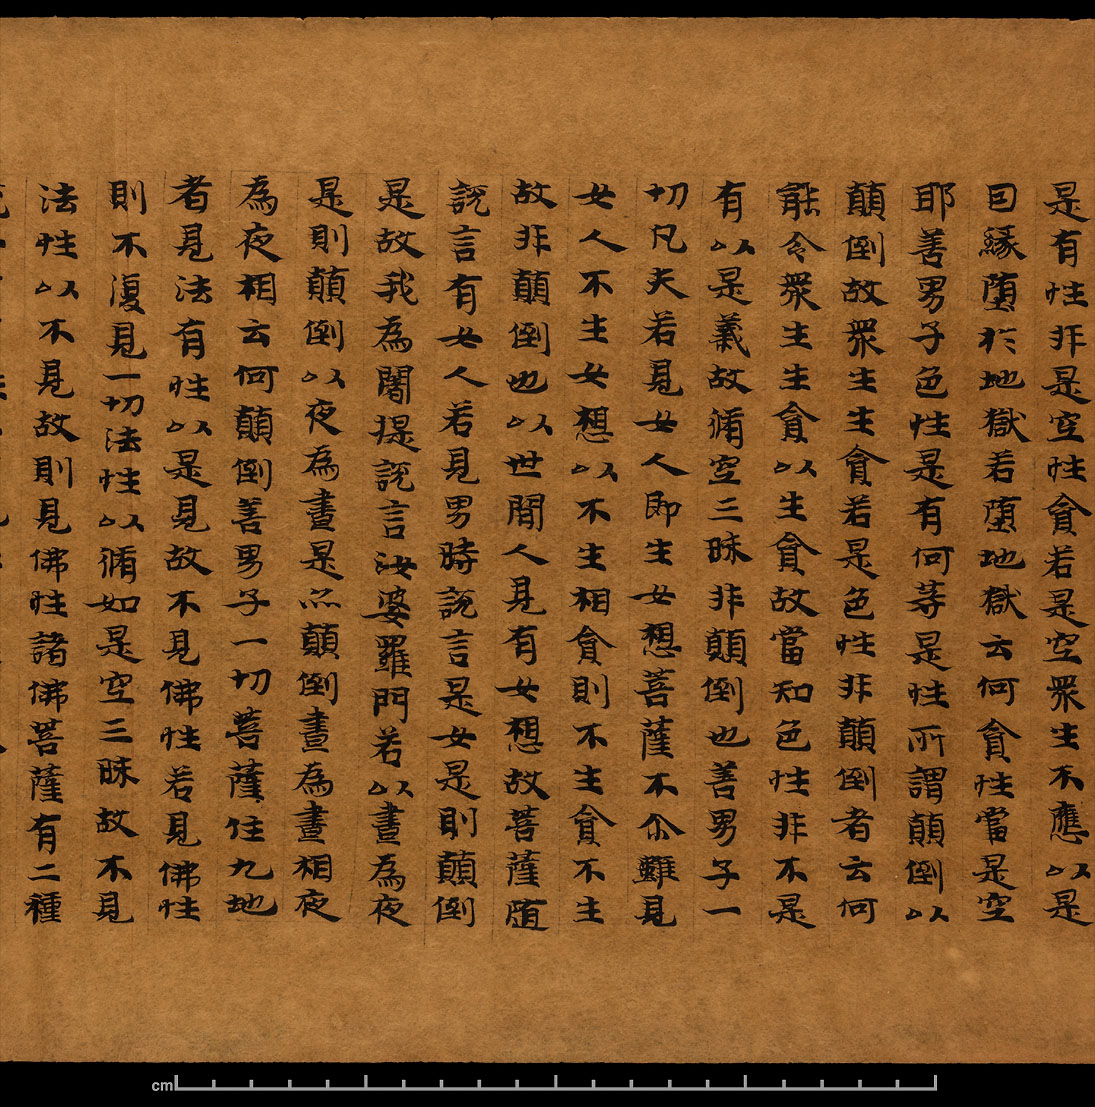 是有性非是空性貪若是空衆生不應以是
囙縁墮於地獄若墮地獄云何貪性當是空
耶善男子色性是有何等是性所謂顛倒以
顛倒故衆生生貪若是色性非顛倒者云何
能令衆生生貪以生貪故當知色性非不是
有以是義故脩空三昧非顛倒也善男子一
切凡夫若見女人即生女想菩薩不尒雖見
女人不生女想以不生相貪則不生貪不生
故非顛倒也以世間人見有女想故菩薩随
說言有女人若見男時說言是女是則顛倒
是故我為闍提說言汝婆羅門若以晝為夜
是則顛倒以夜為晝是亦顛倒晝為晝相夜
為夜相云何顛倒善男子一切菩薩住九地
者見法有性以是見故不見佛性若見佛性
則不復見一切法性以脩如是空三昧故不見
法性以不見故則見佛性諸佛菩薩有二種
cm